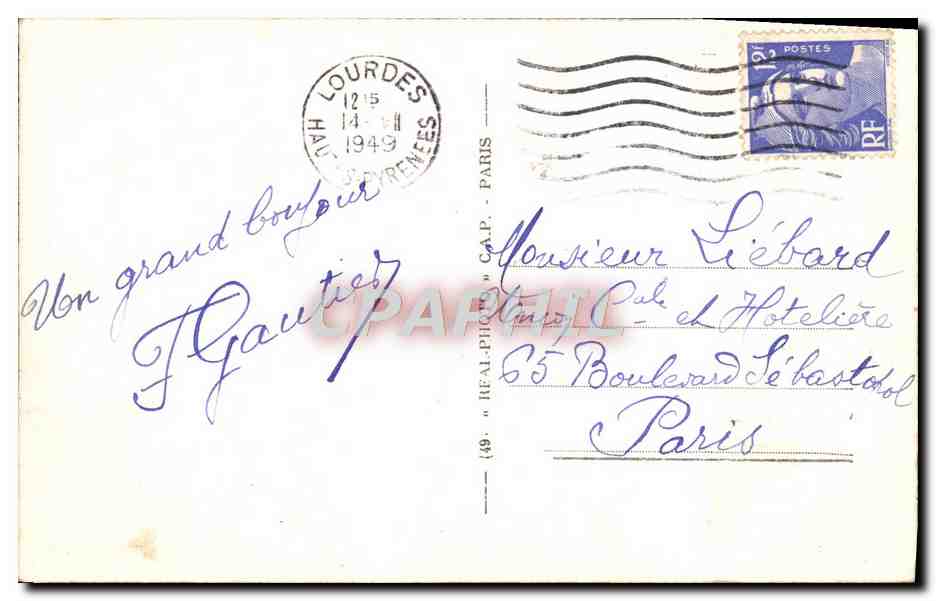 LOURDES
12 15
14
1949
HAUTES PYRENEES
12F POSTES
RF
Un grand bonjour
F Gautier
(49) « REAL-PHOTO » C.A.P. - PARIS
CPAPHIL
Monsieur Liébard
Cale et Hotelière
65 Boulevard Sébastopol
Paris